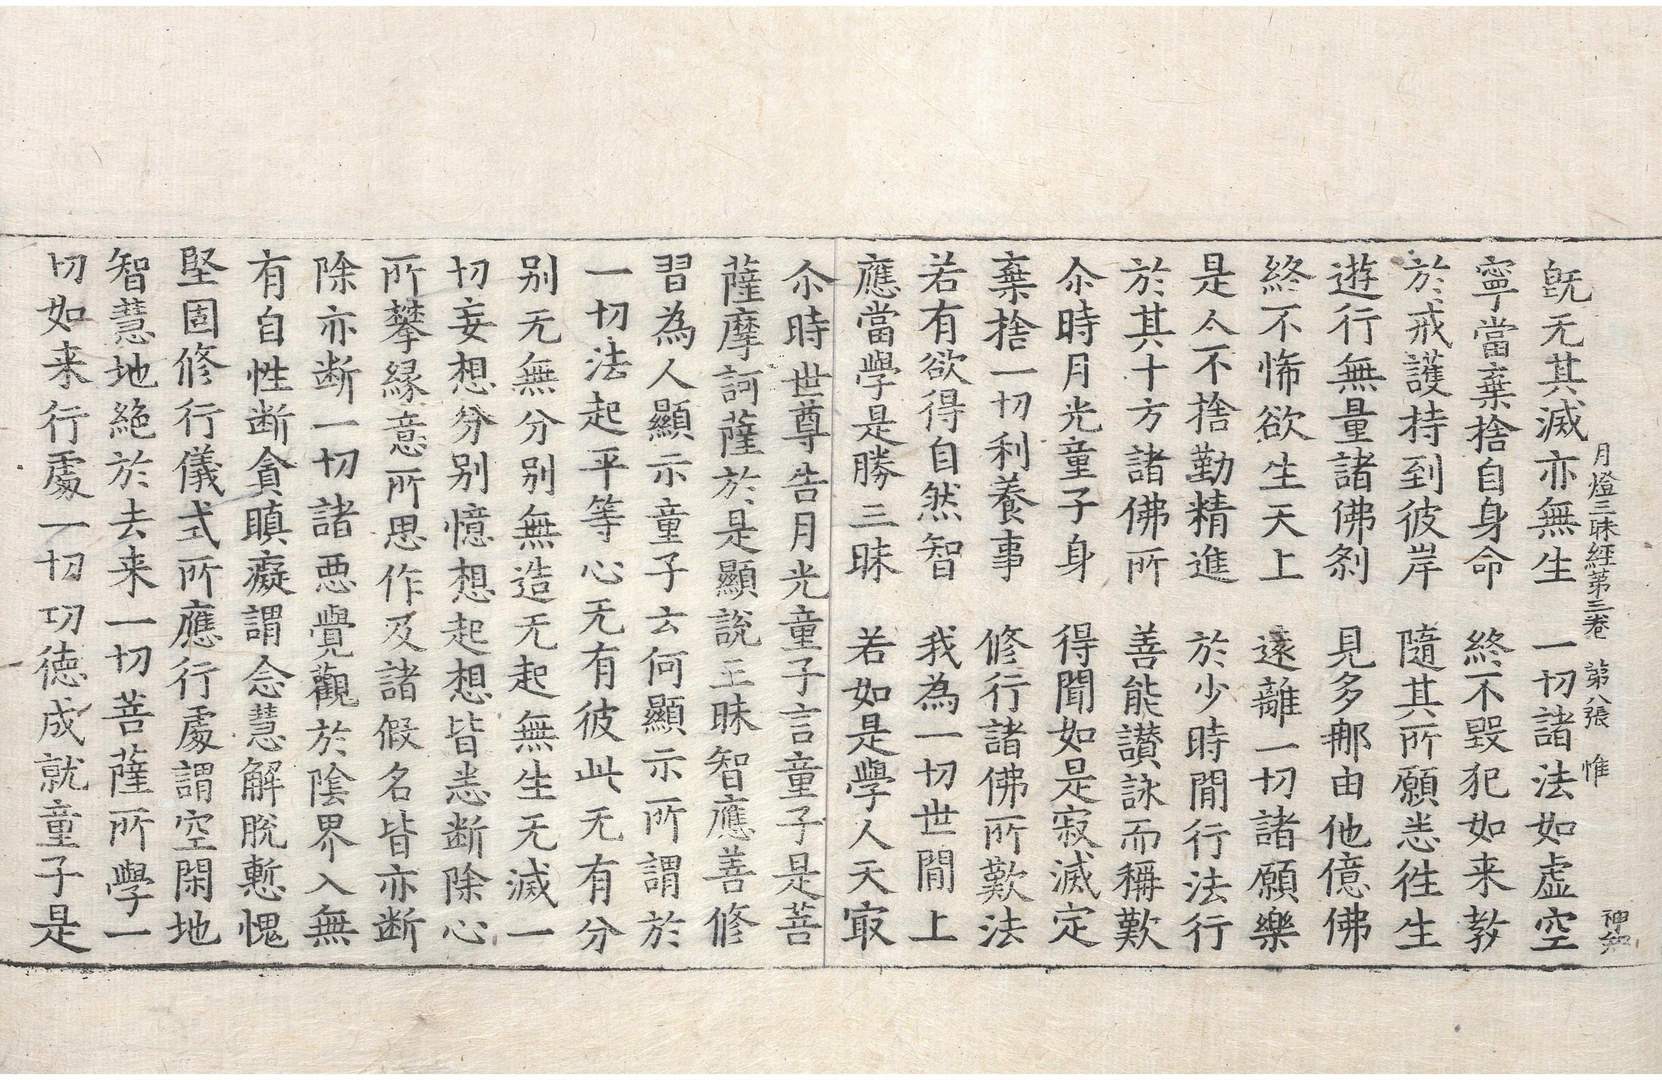 月燈三昧經第三卷　第八張　惟　神知
旣无其滅亦無生　一切諸法如虛空
寧當棄捨自身命　終不毀犯如来教
於戒護持到彼岸　隨其所願悉徃生
遊行無量諸佛刹　見多𨙻由他億佛
終不悕欲生天上　遠離一切諸願樂
是人不捨勤精進　於少時閒行法行
於其十方諸佛所　善能讃詠而稱歎
尒時月光童子身　得聞如是寂滅定
棄捨一切利養事　修行諸佛所歎法
若有欲得自然智　我為一切世閒上
應當學是勝三昧　若如是學人天㝡
尒時世尊告月光童子言童子是菩
薩摩訶薩於是顯說三昧智應善修
習為人顯示童子云何顯示所謂於
一切法起平等心无有彼此无有分
别无無分别無造无起無生无滅一
切妄想分别憶想起想皆悉断除心
所攀縁意所思作及諸假名皆亦断
除亦断一切諸惡覺觀於陰界入無
有自性断貪瞋癡謂念慧解脫慙愧
堅固修行儀式所應行處謂空閑地
智慧地絶於去来一切菩薩所學一
切如来行處一切功徳成就童子是